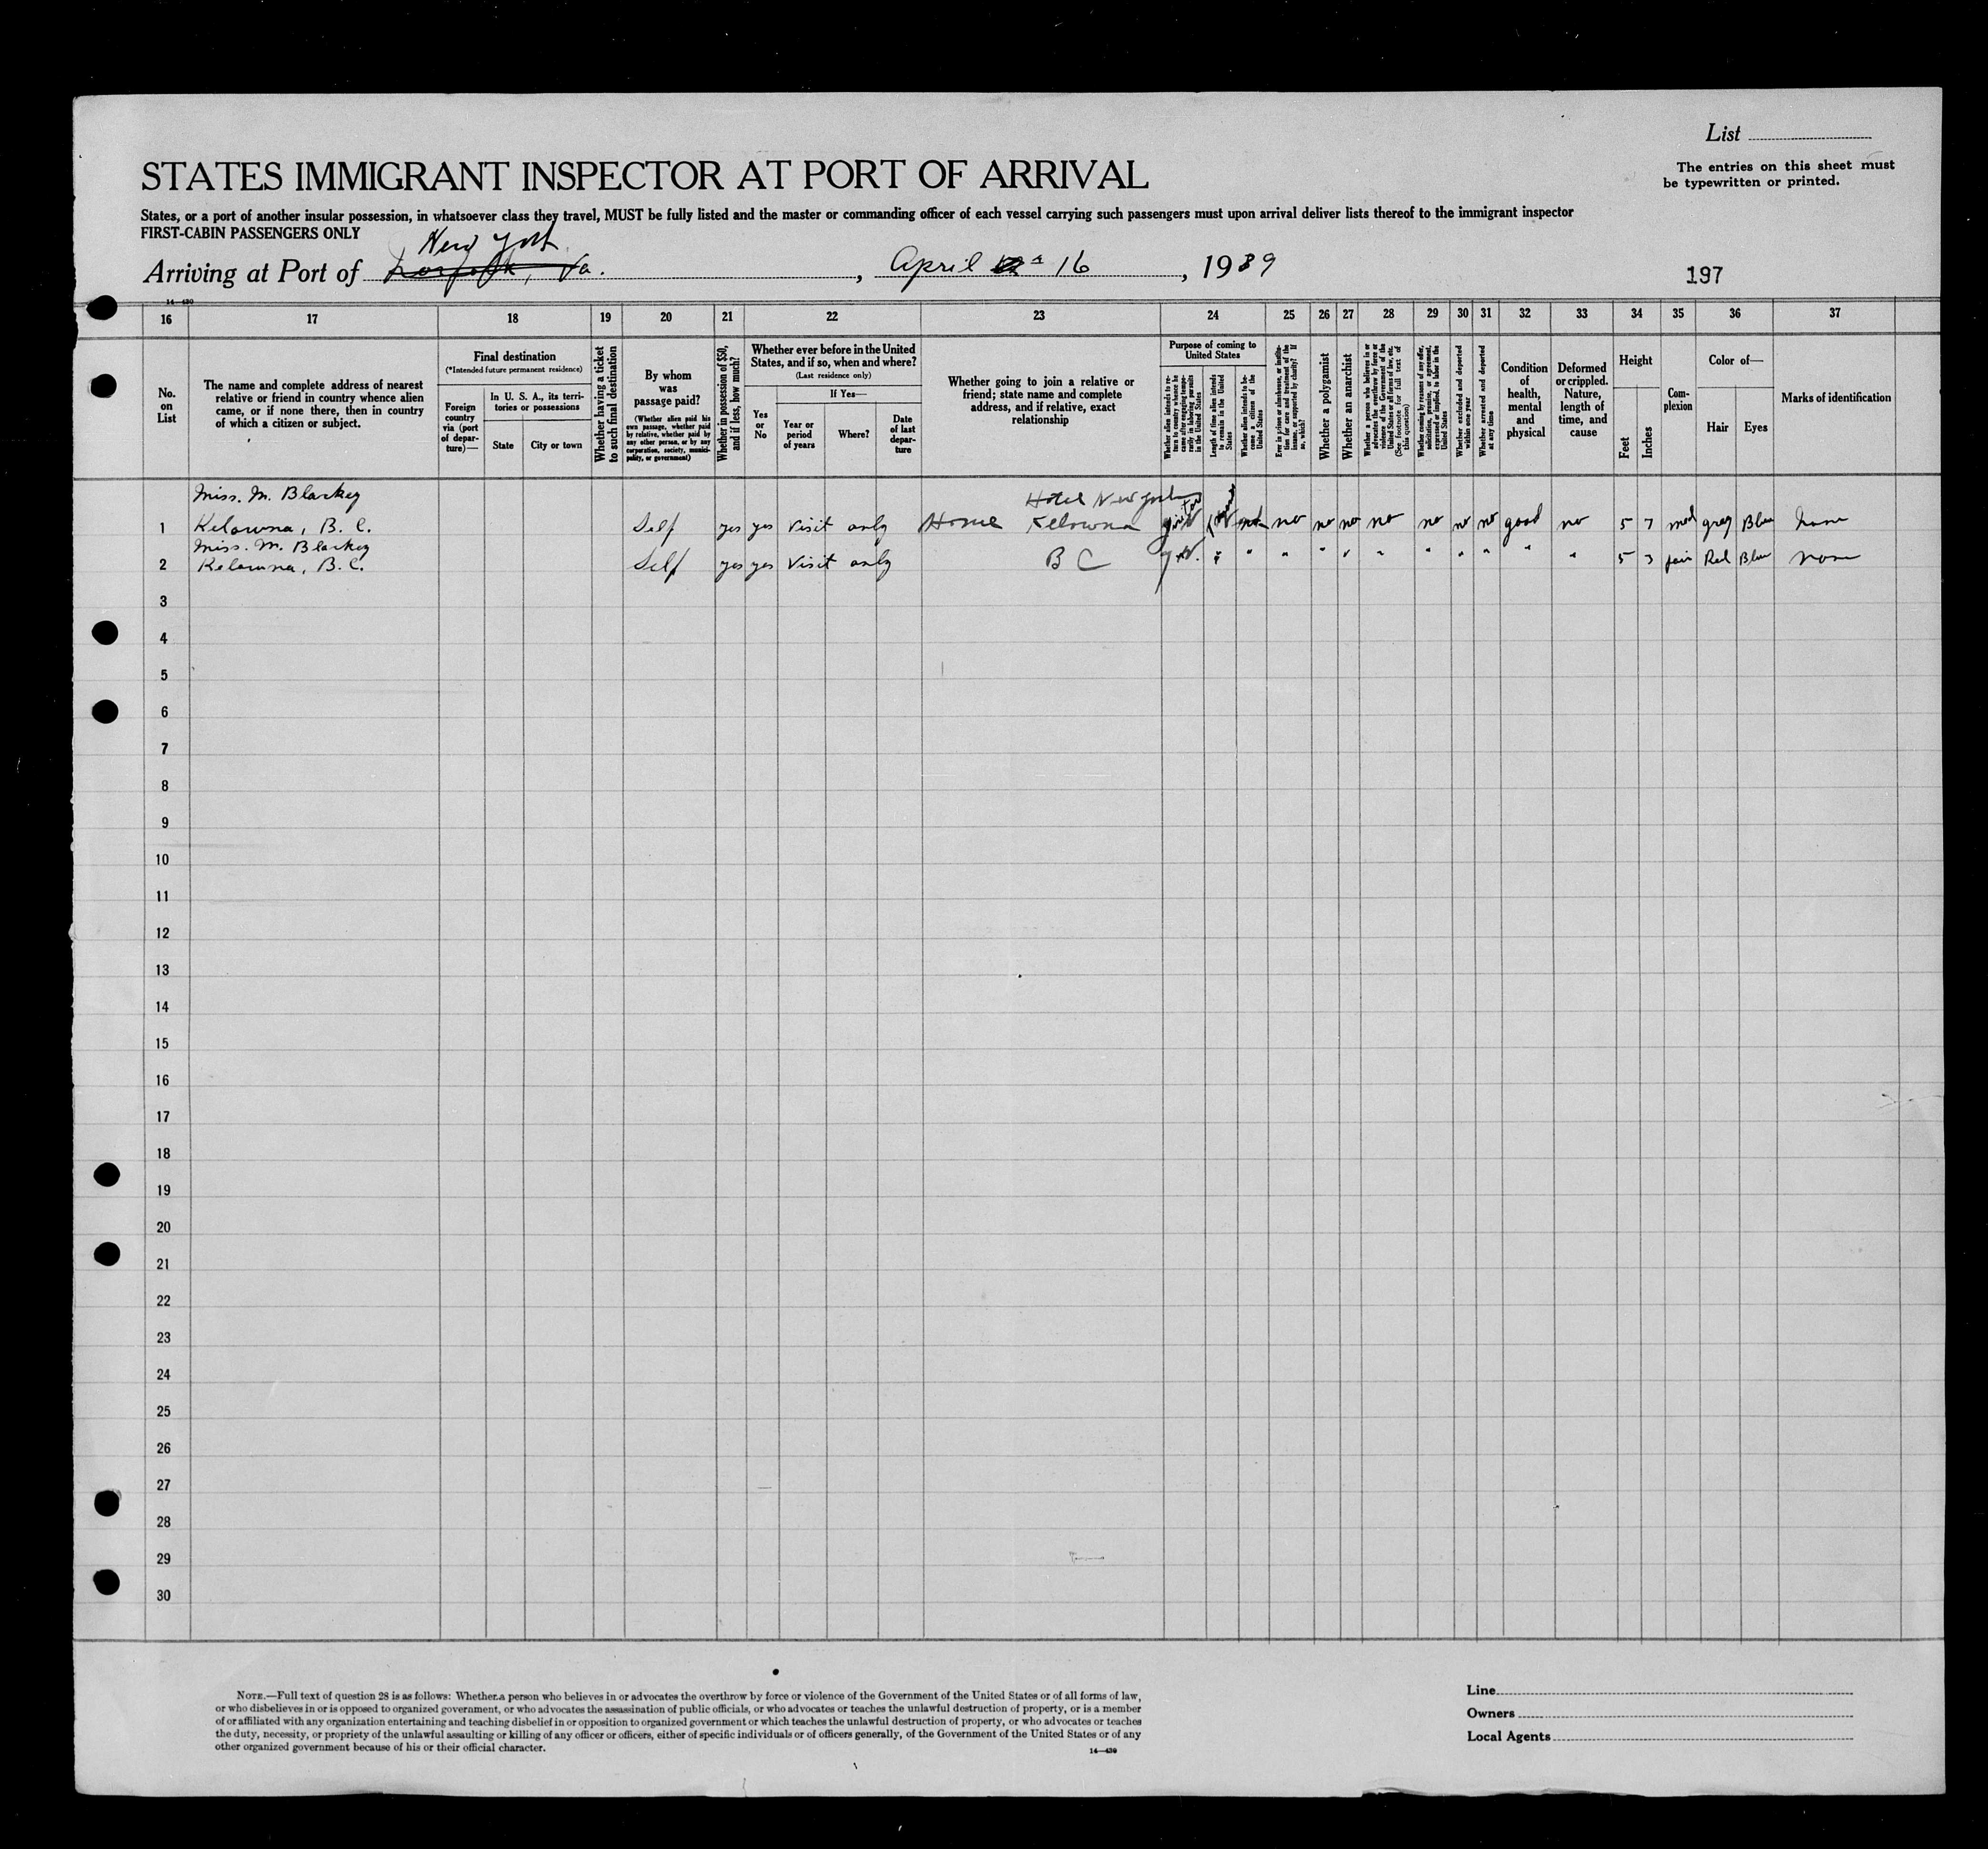 List
STATES IMMIGRANT INSPECTOR AT PORT OF ARRIVAL
The entries on this sheet must
be typewritten or printed.
States, or a port of another insular possession, in whatsoever class they travel, MUST be fully listed and the master or commanding officer of each vessel carrying such passengers must upon arrival deliver lists thereof to the immigrant inspector
FIRST-CABIN PASSENGERS ONLY
New York
Arriving at Port of Norfolk, Va. , April 16 , 1939
197
14—430
16 17 18 19 20 21 22 23 24 25 26 27 28 29 30 31 32 33 34 35 36 37
No.
on
List
The name and complete address of nearest
relative or friend in country whence alien
came, or if none there, then in country
of which a citizen or subject.
Final destination
(*Intended future permanent residence)
Foreign
country
via (port
of depar-
ture)—
In U. S. A., its terri-
tories or possessions
State
City or town
Whether having a ticket
to such final destination
By whom
was
passage paid?
(Whether alien paid his
own passage, whether paid
by relative, whether paid by
any other person, or by any
corporation, society, munici-
pality, or government)
Whether in possession of $50,
and if less, how much?
Whether ever before in the United
States, and if so, when and where?
(Last residence only)
Yes
or
No
If Yes—
Year or
period
of years
Where?
Date
of last
depar-
ture
Whether going to join a relative or
friend; state name and complete
address, and if relative, exact
relationship
Purpose of coming to
United States
Whether alien intends to re-
turn to country whence he
came after engaging tempo-
rarily in laboring pursuits
in the United States
Length of time alien intends
to remain in the United
States
Whether alien intends to be-
come a citizen of the
United States
Ever in prison or almshouse, or institu-
tion for care and treatment of the
insane, or supported by charity? If
so, which?
Whether a polygamist
Whether an anarchist
Whether a person who believes in or
advocates the overthrow by force or
violence of the Government of the
United States or all forms of law, etc.
(See footnote for full text of
this question)
Whether coming by reasons of any offer,
solicitation, promise, or agreement,
expressed or implied, to labor in the
United States
Whether excluded and deported
within one year
Whether arrested and deported
at any time
Condition
of
health,
mental
and
physical
Deformed
or crippled.
Nature,
length of
time, and
cause
Height
Feet
Inches
Com-
plexion
Color of—
Hair
Eyes
Marks of identification
Miss. M. Blackey
Hotel New Yorker
1 Kelowna, B. C. Self yes yes Visit only Home Kelowna no no no no no no no good no 5 7 med grey Blue none
Miss. M. Blackey
2 Kelowna, B. C. Self yes yes Visit only B C " " " " " " " " " 5 3 fair Red Blue none
3
4
5
6
7
8
9
10
11
12
13
14
15
16
17
18
19
20
21
22
23
24
25
26
27
28
29
30
NOTE.—Full text of question 28 is as follows: Whether a person who believes in or advocates the overthrow by force or violence of the Government of the United States or of all forms of law,
or who disbelieves in or is opposed to organized government, or who advocates the assassination of public officials, or who advocates or teaches the unlawful destruction of property, or is a member
of or affiliated with any organization entertaining and teaching disbelief in or opposition to organized government or which teaches the unlawful destruction of property, or who advocates or teaches
the duty, necessity, or propriety of the unlawful assaulting or killing of any officer or officers, either of specific individuals or of officers generally, of the Government of the United States or of any
other organized government because of his or their official character.
14—430
Line
Owners
Local Agents